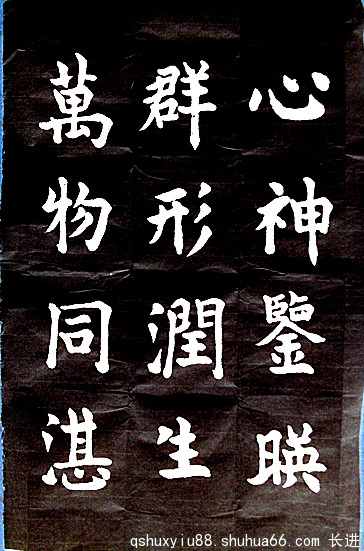 心神鑒暎
群形潤生
萬物同湛
qshuxyju88.shuhua66.com 长进